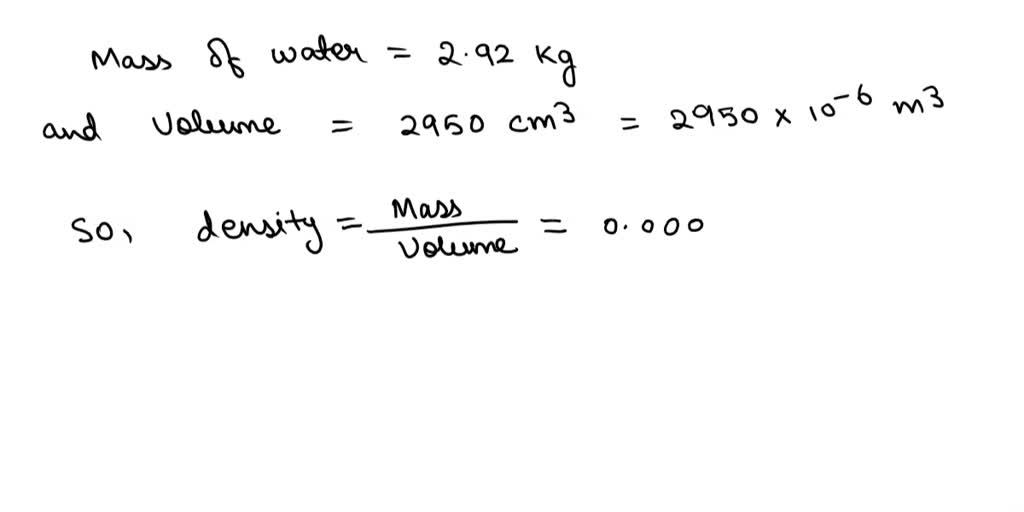 Mass of water = 2.92 kg
and Volume = 2950 cm³ = 2950 × 10⁻⁶ m³
So, density = Mass / Volume = 0.000